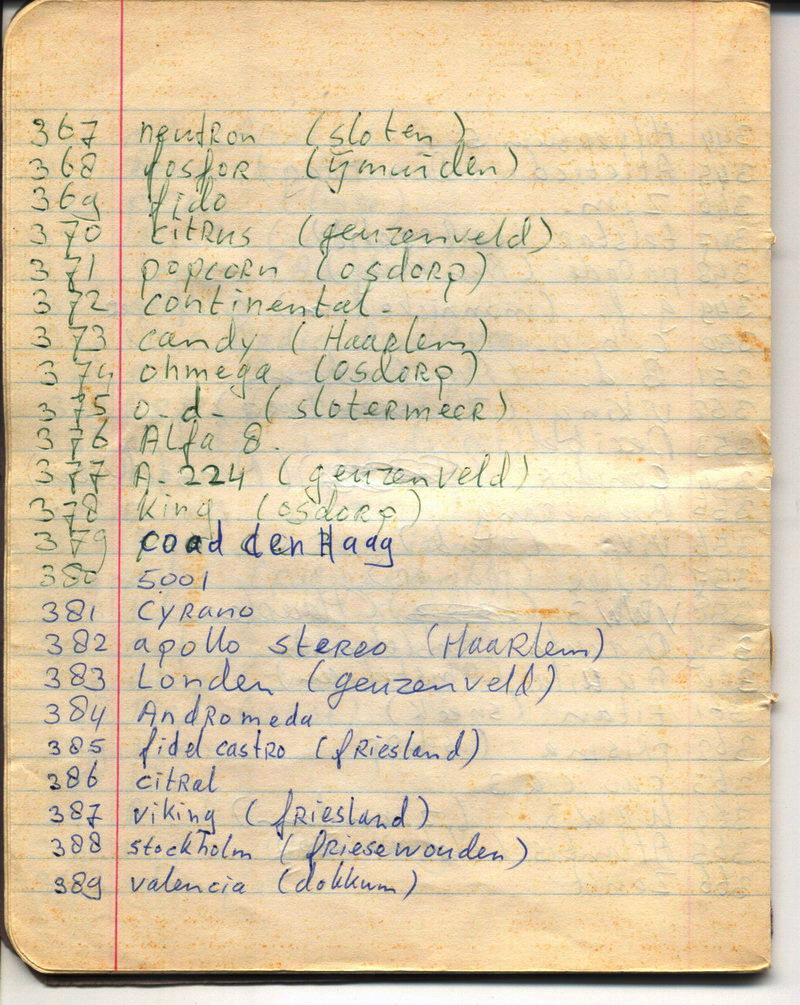 367 neutron (sloten)
368 fosfor (ijmuiden)
369 fido
370 citrus (geuzenveld)
371 popcorn (osdorp)
372 continental.
373 candy (Haarlem)
374 ohmega (osdorp)
375 o.d. (slotermeer)
376 Alfa 8.
377 A.224 (geuzenveld)
378 king (osdorp)
379 coad den Haag
380 5001
381 Cyrano
382 apollo stereo (Haarlem)
383 Londen (geuzenveld)
384 Andromeda
385 fidel castro (friesland)
386 citral
387 viking (friesland)
388 stockholm (friesewouden)
389 valencia (dokkum)